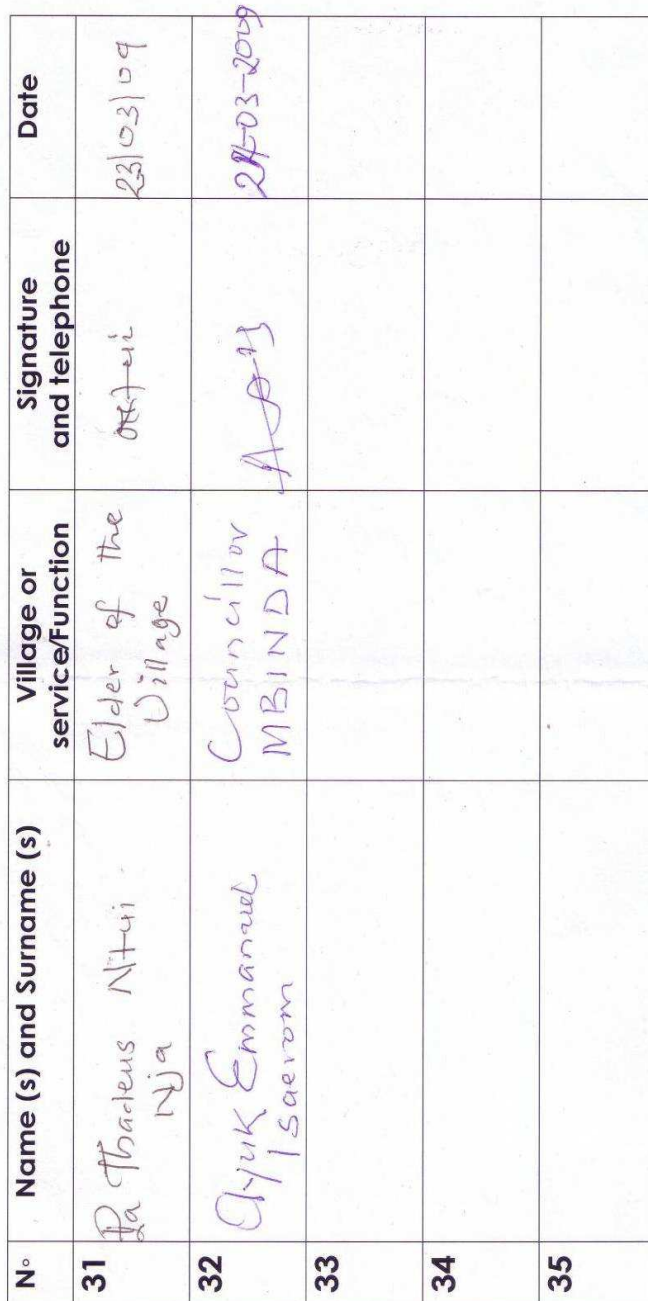 N° Name (s) and Surname (s) Village or service/Function Signature and telephone Date
31 Pa Thadeus Ntui Nja Elder of the Village 23/03/09
32 Ayuk Emmanuel Councillor MBINDA 03-2009
33
34
35